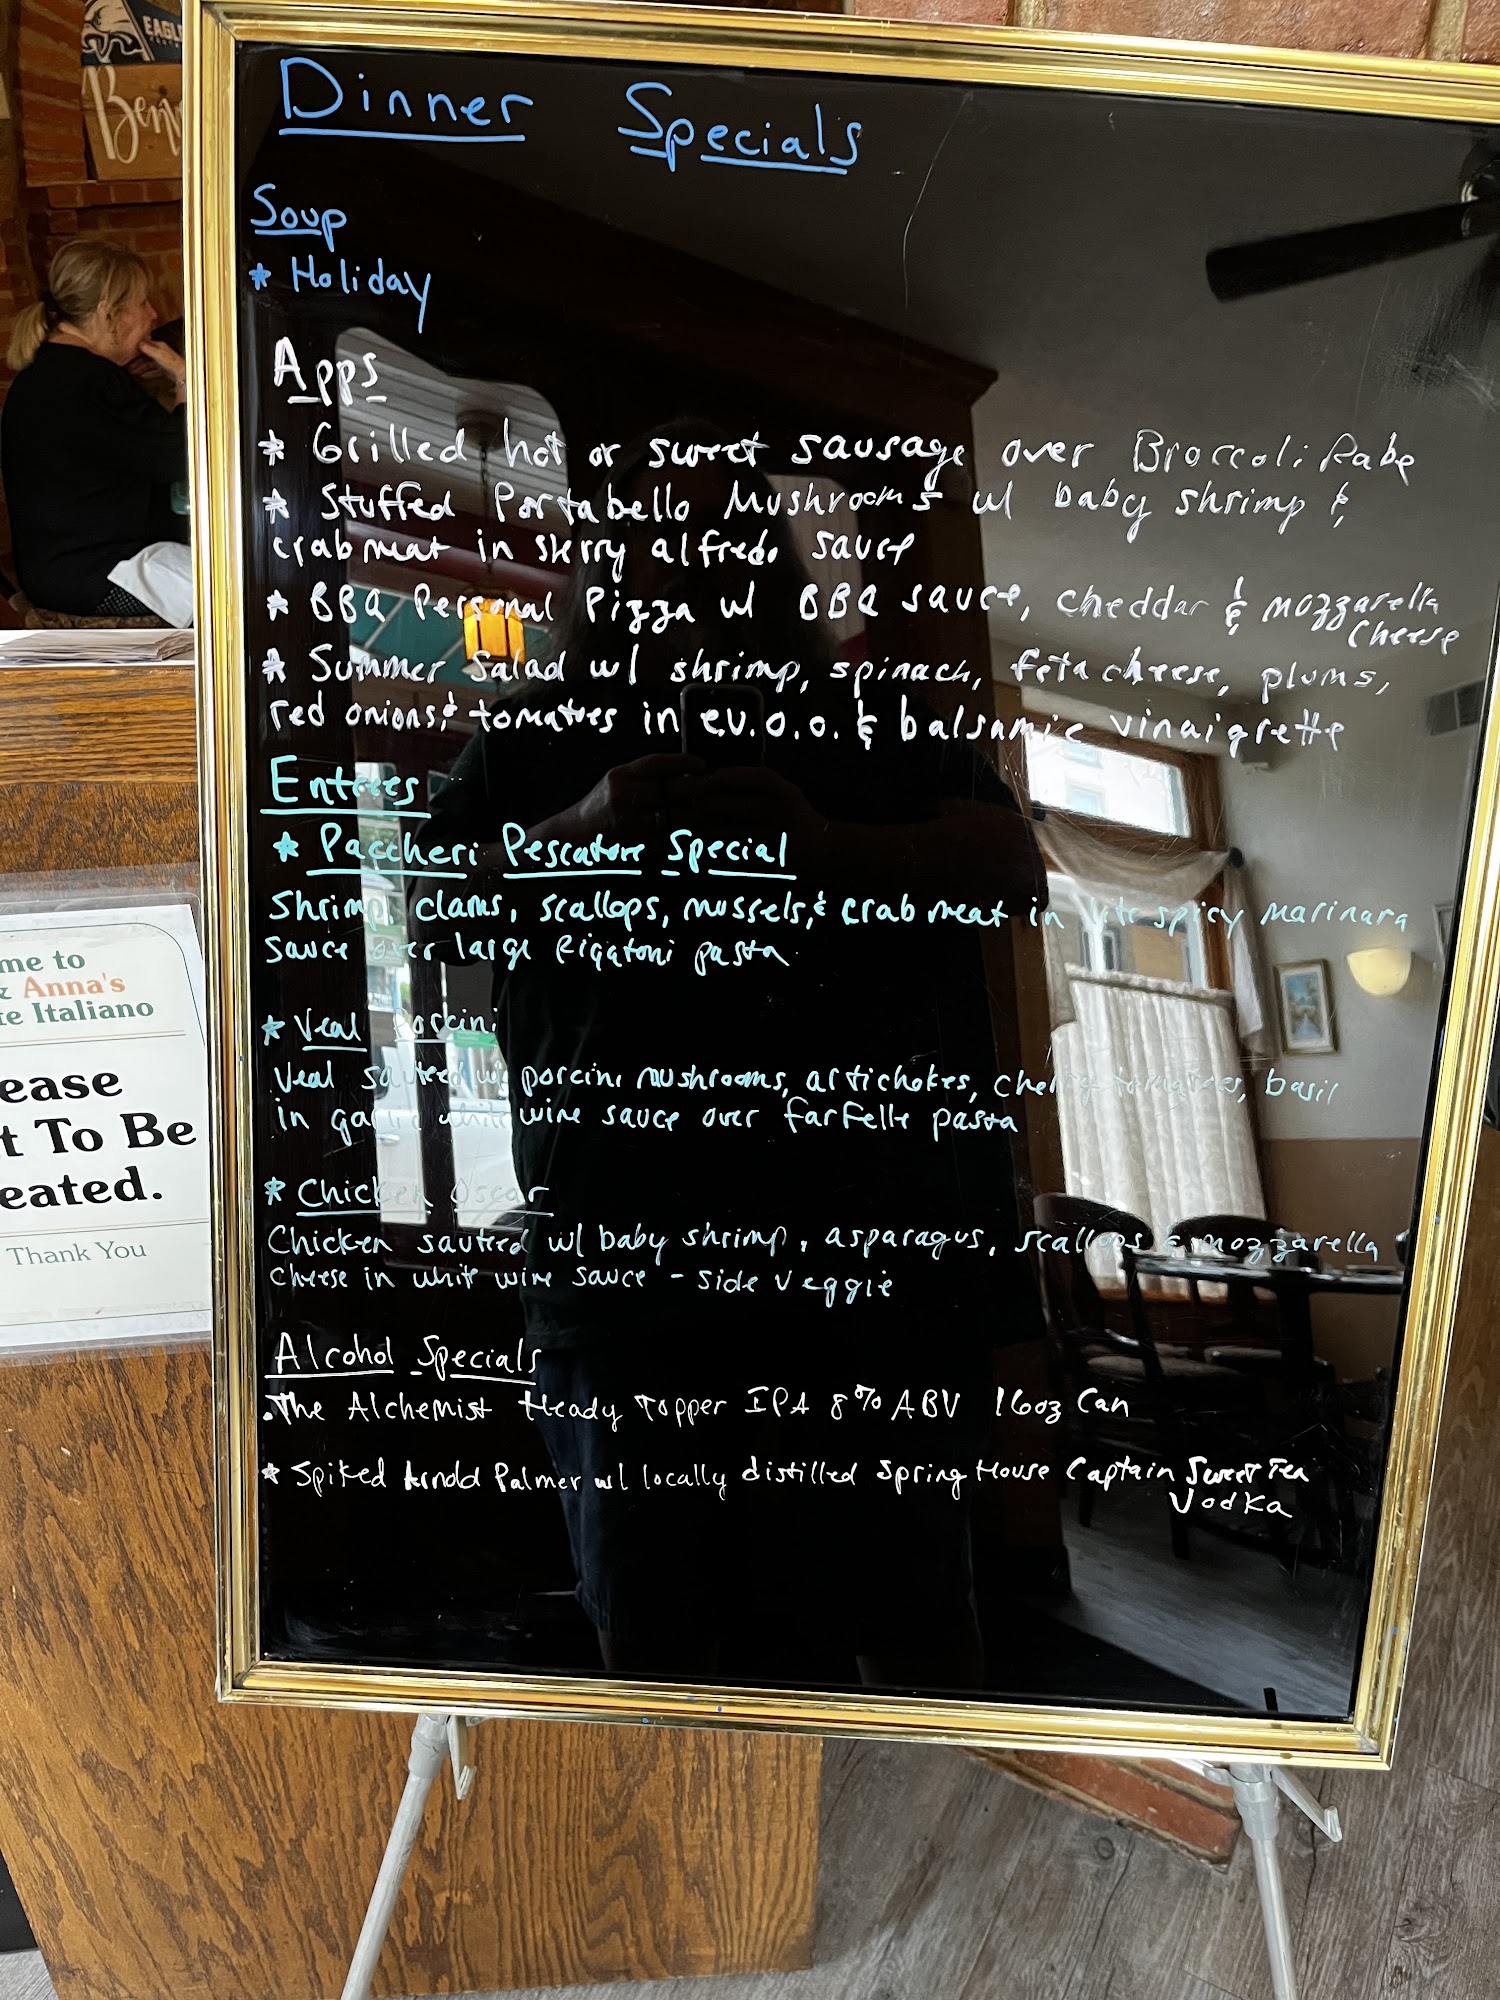 EAGL
Dinner Specials
Soup
* Holiday
Apps
* Grilled hot or sweet sausage over Broccoli Rabe
* Stuffed Portabello Mushrooms w/ baby shrimp &
crabmeat in sherry alfredo sauce
* BBQ Personal Pizza w/ BBQ sauce, cheddar & mozzarella
cheese
* Summer Salad w/ shrimp, spinach, feta cheese, plums,
red onions, & tomatoes in e.v.o.o. & balsamic vinaigrette
Entrees
* Paccheri Pescatore Special
Shrimp, clams, scallops, mussels, & crabmeat in lite spicy marinara
sauce over large Rigatoni pasta
* Veal Porcini
Veal sauteed w/ porcini mushrooms, artichokes, cherry tomatoes, basil
in garlic white wine sauce over farfelle pasta
* Chicken Oscar
Chicken sauteed w/ baby shrimp, asparagus, scallops & mozzarella
cheese in white wine sauce - side veggie
Alcohol Specials
. The Alchemist Heady Topper IPA 8% ABV 16oz Can
* Spiked Arnold Palmer w/ locally distilled Spring House Captain Sweet Tea
Vodka
me to
& Anna's
te Italiano
ease
t To Be
eated.
Thank You